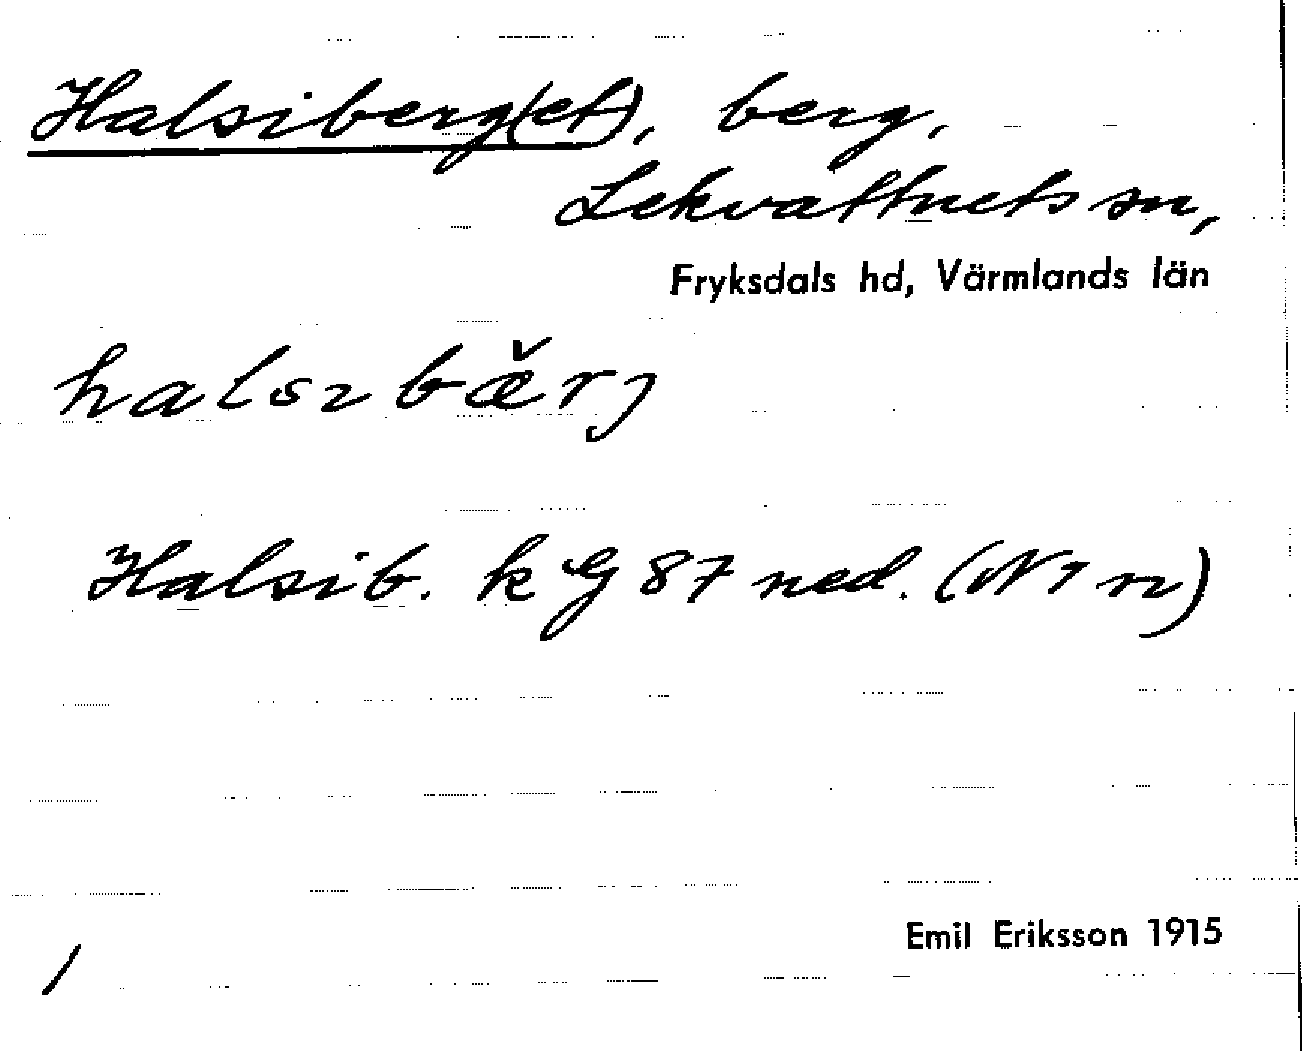 Halsiberg(et), berg,
Lekvattnets sn,
Fryksdals hd, Värmlands län
halsıbæ̌rj
Halsib. k G 87 ned. (N 1 n)
Emil Eriksson 1915
/